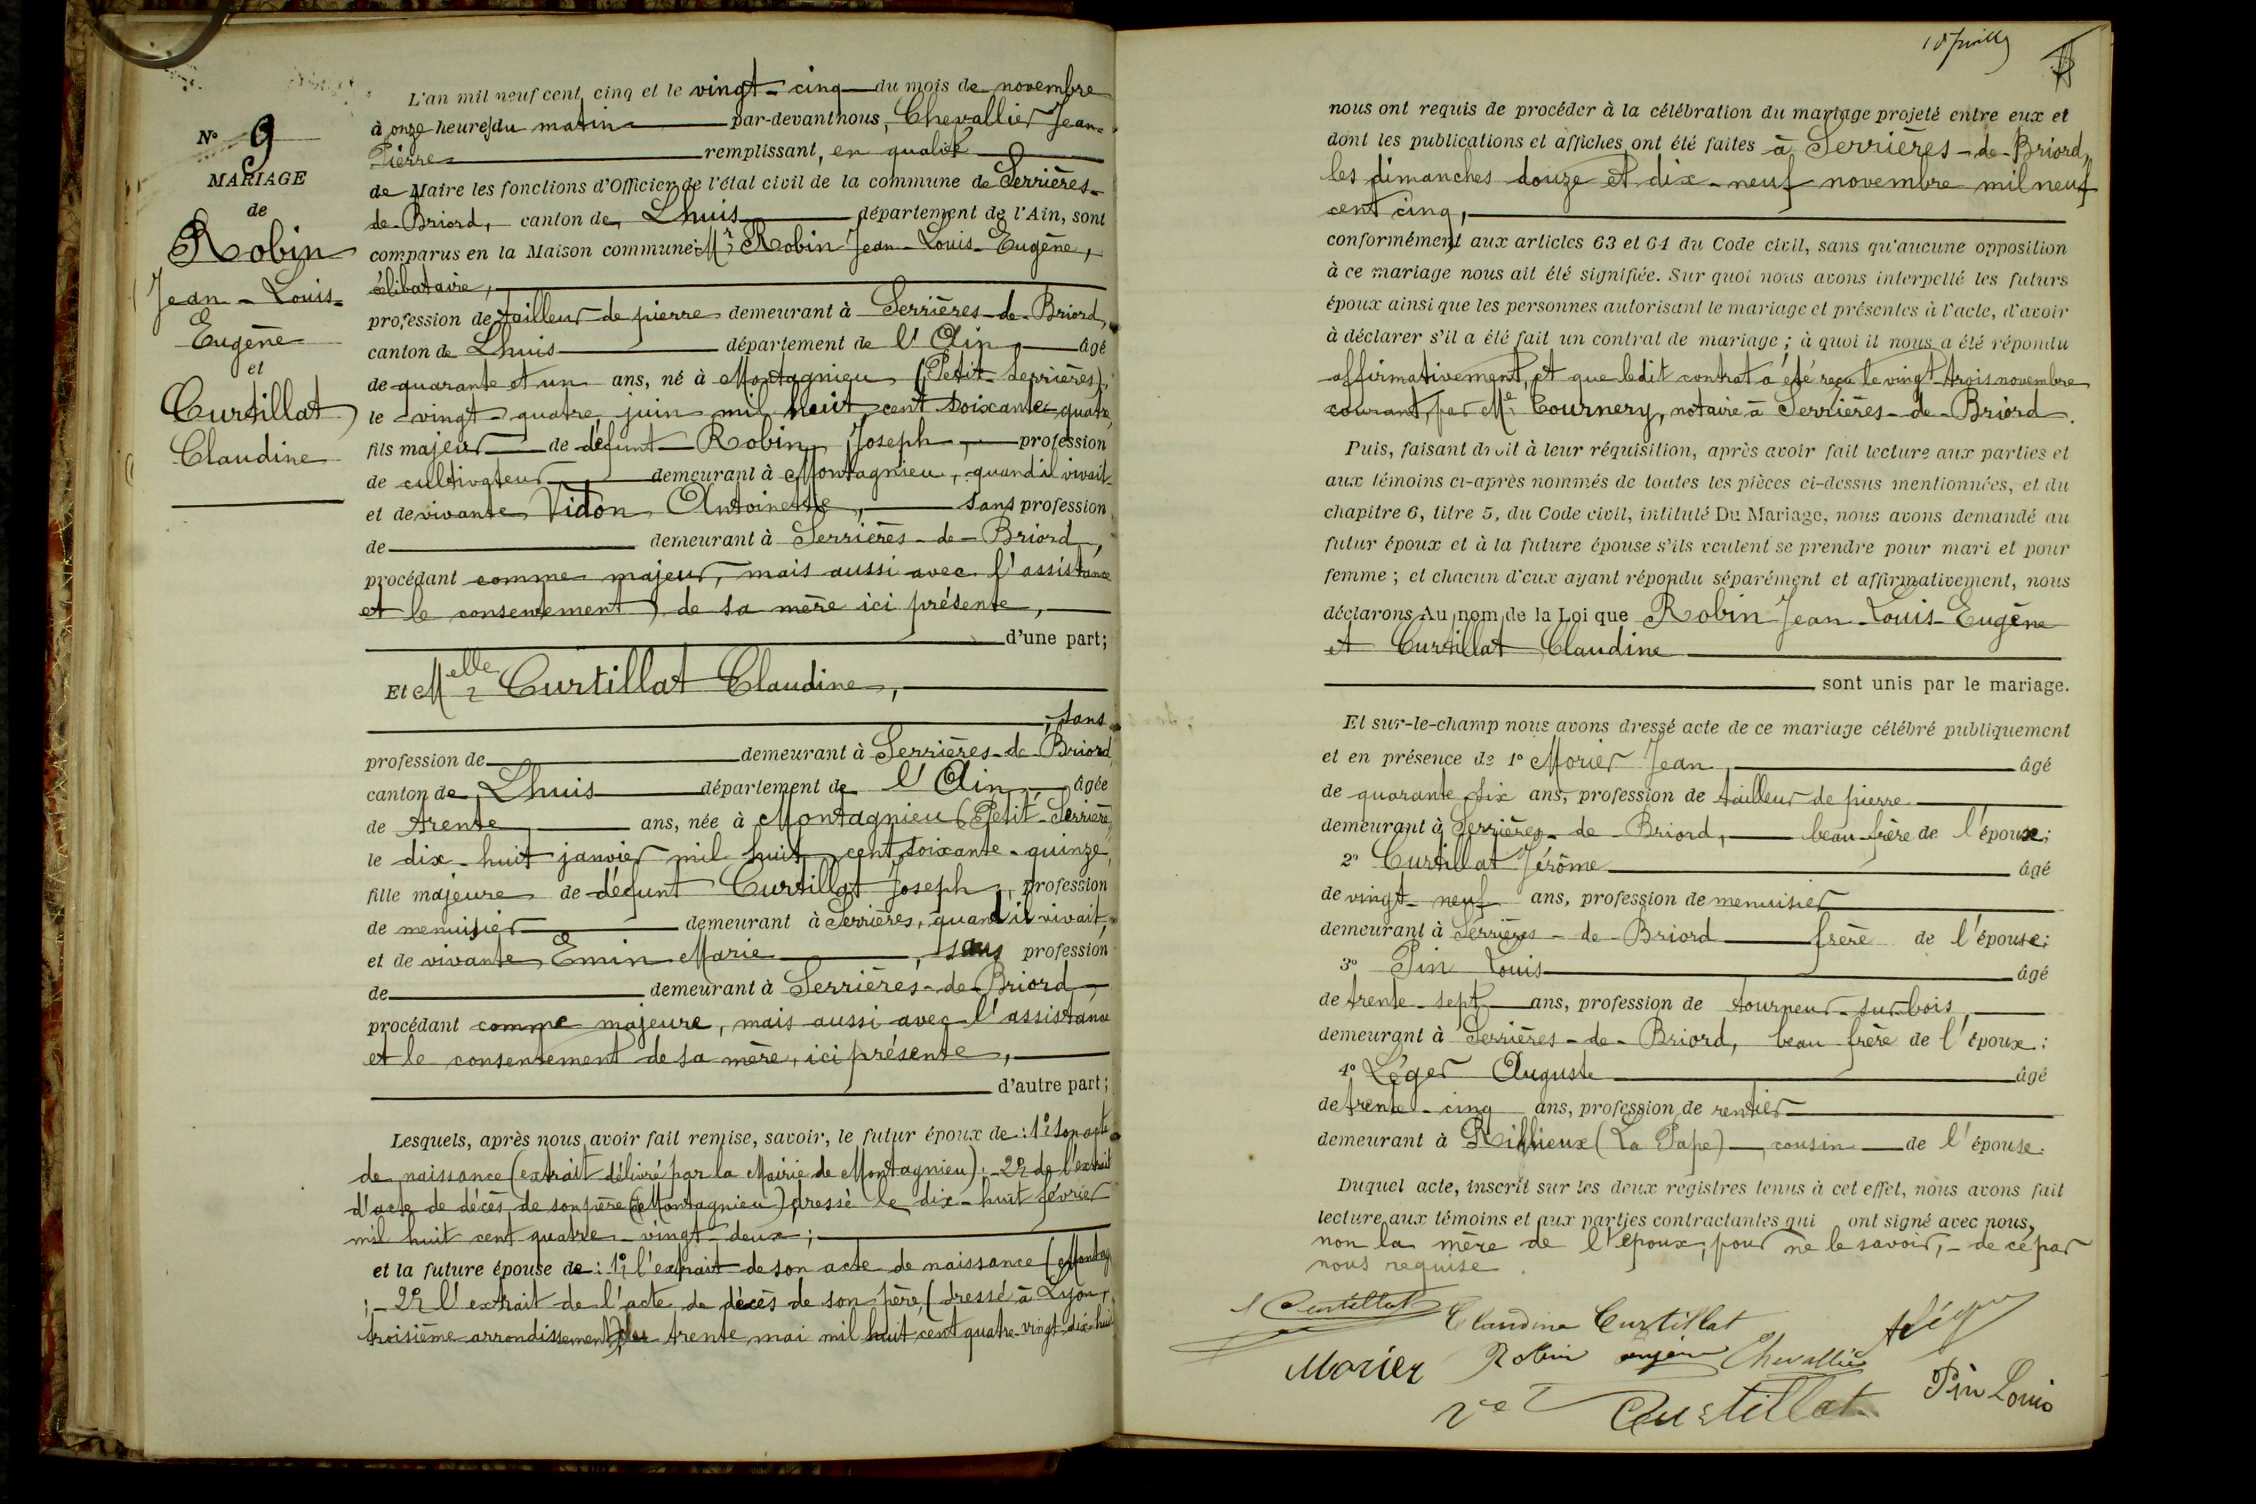 N° 9
MARIAGE
de
Robin
Jean - Louis-
Eugène
et
Curtillat
Claudine
L'an mil neuf cent cinq et le vingt - cinq du mois de novembre
à onze heures du matin par-devant nous, Chevallier Jean-
Pierre remplissant, en qualité
de Maire les fonctions d'Officier de l'état civil de la commune de Serrières-
de-Briord, canton de Lhuis département de l'Ain, sont
comparus en la Maison commune: Mr Robin Jean-Louis-Eugène,
célibataire,
profession de tailleur de pierre demeurant à Serrières-de-Briord,
canton de Lhuis département de l'Ain, âgé
de quarante et un ans, né à Montagnieu (Petit-Serrières),
le vingt-quatre juin mil huit cent soixante-quatre,
fils majeur de défunt Robin Joseph, profession
de cultivateur demeurant à Montagnieu, quand il vivait
et de vivante Vidon Antoinette, sans profession
de demeurant à Serrières-de-Briord,
procédant comme majeur, mais aussi avec l'assistance
et le consentement de sa mère ici présente,
d'une part;
Et Melle Curtillat Claudine,
, sans
profession de demeurant à Serrières-de-Briord,
canton de Lhuis département de l'Ain âgée
de trente ans, née à Montagnieu (Petit-Serrières)
le dix-huit janvier mil huit cent soixante-quinze,
fille majeure de défunt Curtillat Joseph, profession
de menuisier demeurant à Serrières, quand il vivait,
et de vivante Emin Marie, sans profession
de demeurant à Serrières-de-Briord,
procédant comme majeure, mais aussi avec l'assistance
et le consentement de sa mère, ici présente,
d'autre part;
Lesquels, après nous avoir fait remise, savoir, le futur époux de: 1° son acte
de naissance (extrait délivré par la Mairie de Montagnieu); - 2° de l'extrait
d'acte de décès de son père (de Montagnieu) dressé le dix-huit février
mil huit cent quatre-vingt-deux;
et la future épouse de: 1° l'extrait de son acte de naissance (Montag
; - 2° l'extrait de l'acte de décès de son père, (dressé à Lyon,
troisième arrondissement) le trente mai mil huit cent quatre-vingt-dix-huit
nous ont requis de procéder à la célébration du mariage projeté entre eux et
dont les publications et affiches ont été faites à Serrières-de-Briord,
les dimanches douze et dix-neuf novembre mil neuf
cent cinq,
conformément aux articles 63 et 64 du Code civil, sans qu'aucune opposition
à ce mariage nous ait été signifiée. Sur quoi nous avons interpellé les futurs
époux ainsi que les personnes autorisant le mariage et présentes à l'acte, d'avoir
à déclarer s'il a été fait un contrat de mariage; à quoi il nous a été répondu
affirmativement, et que ledit contrat a été reçu le vingt-trois novembre
courant, par Me Tournery, notaire à Serrières-de-Briord.
Puis, faisant droit à leur réquisition, après avoir fait lecture aux parties et
aux témoins ci-après nommés de toutes les pièces ci-dessus mentionnées, et du
chapitre 6, titre 5, du Code civil, intitulé Du Mariage, nous avons demandé au
futur époux et à la future épouse s'ils veulent se prendre pour mari et pour
femme; et chacun d'eux ayant répondu séparément et affirmativement, nous
déclarons Au nom de la Loi que Robin Jean-Louis-Eugène
et Curtillat Claudine
sont unis par le mariage.
Et sur-le-champ nous avons dressé acte de ce mariage célébré publiquement
et en présence de 1° Morier Jean, âgé
de quarante six ans, profession de tailleur de pierre
demeurant à Serrières-de-Briord, beau-frère de l'époux;
2° Curtillat Jérôme âgé
de vingt-neuf ans, profession de menuisier
demeurant à Serrières-de-Briord frère de l'épouse;
3° Pin Louis âgé
de trente-sept ans, profession de tourneur-sur-bois,
demeurant à Serrières-de-Briord, beau frère de l'époux:
4° Léger Auguste âgé
de trente-cinq ans, profession de rentier
demeurant à Rillieux (La Pape), cousin de l'épouse.
Duquel acte, inscrit sur les deux registres tenus à cet effet, nous avons fait
lecture aux témoins et aux parties contractantes qui ont signé avec nous,
non la mère de l'époux, pour ne le savoir, - de ce par
nous requise.
Curtillat
Claudine Curtillat
Morier
Robin
Chevallier
Pin Louis
Ve Curtillat